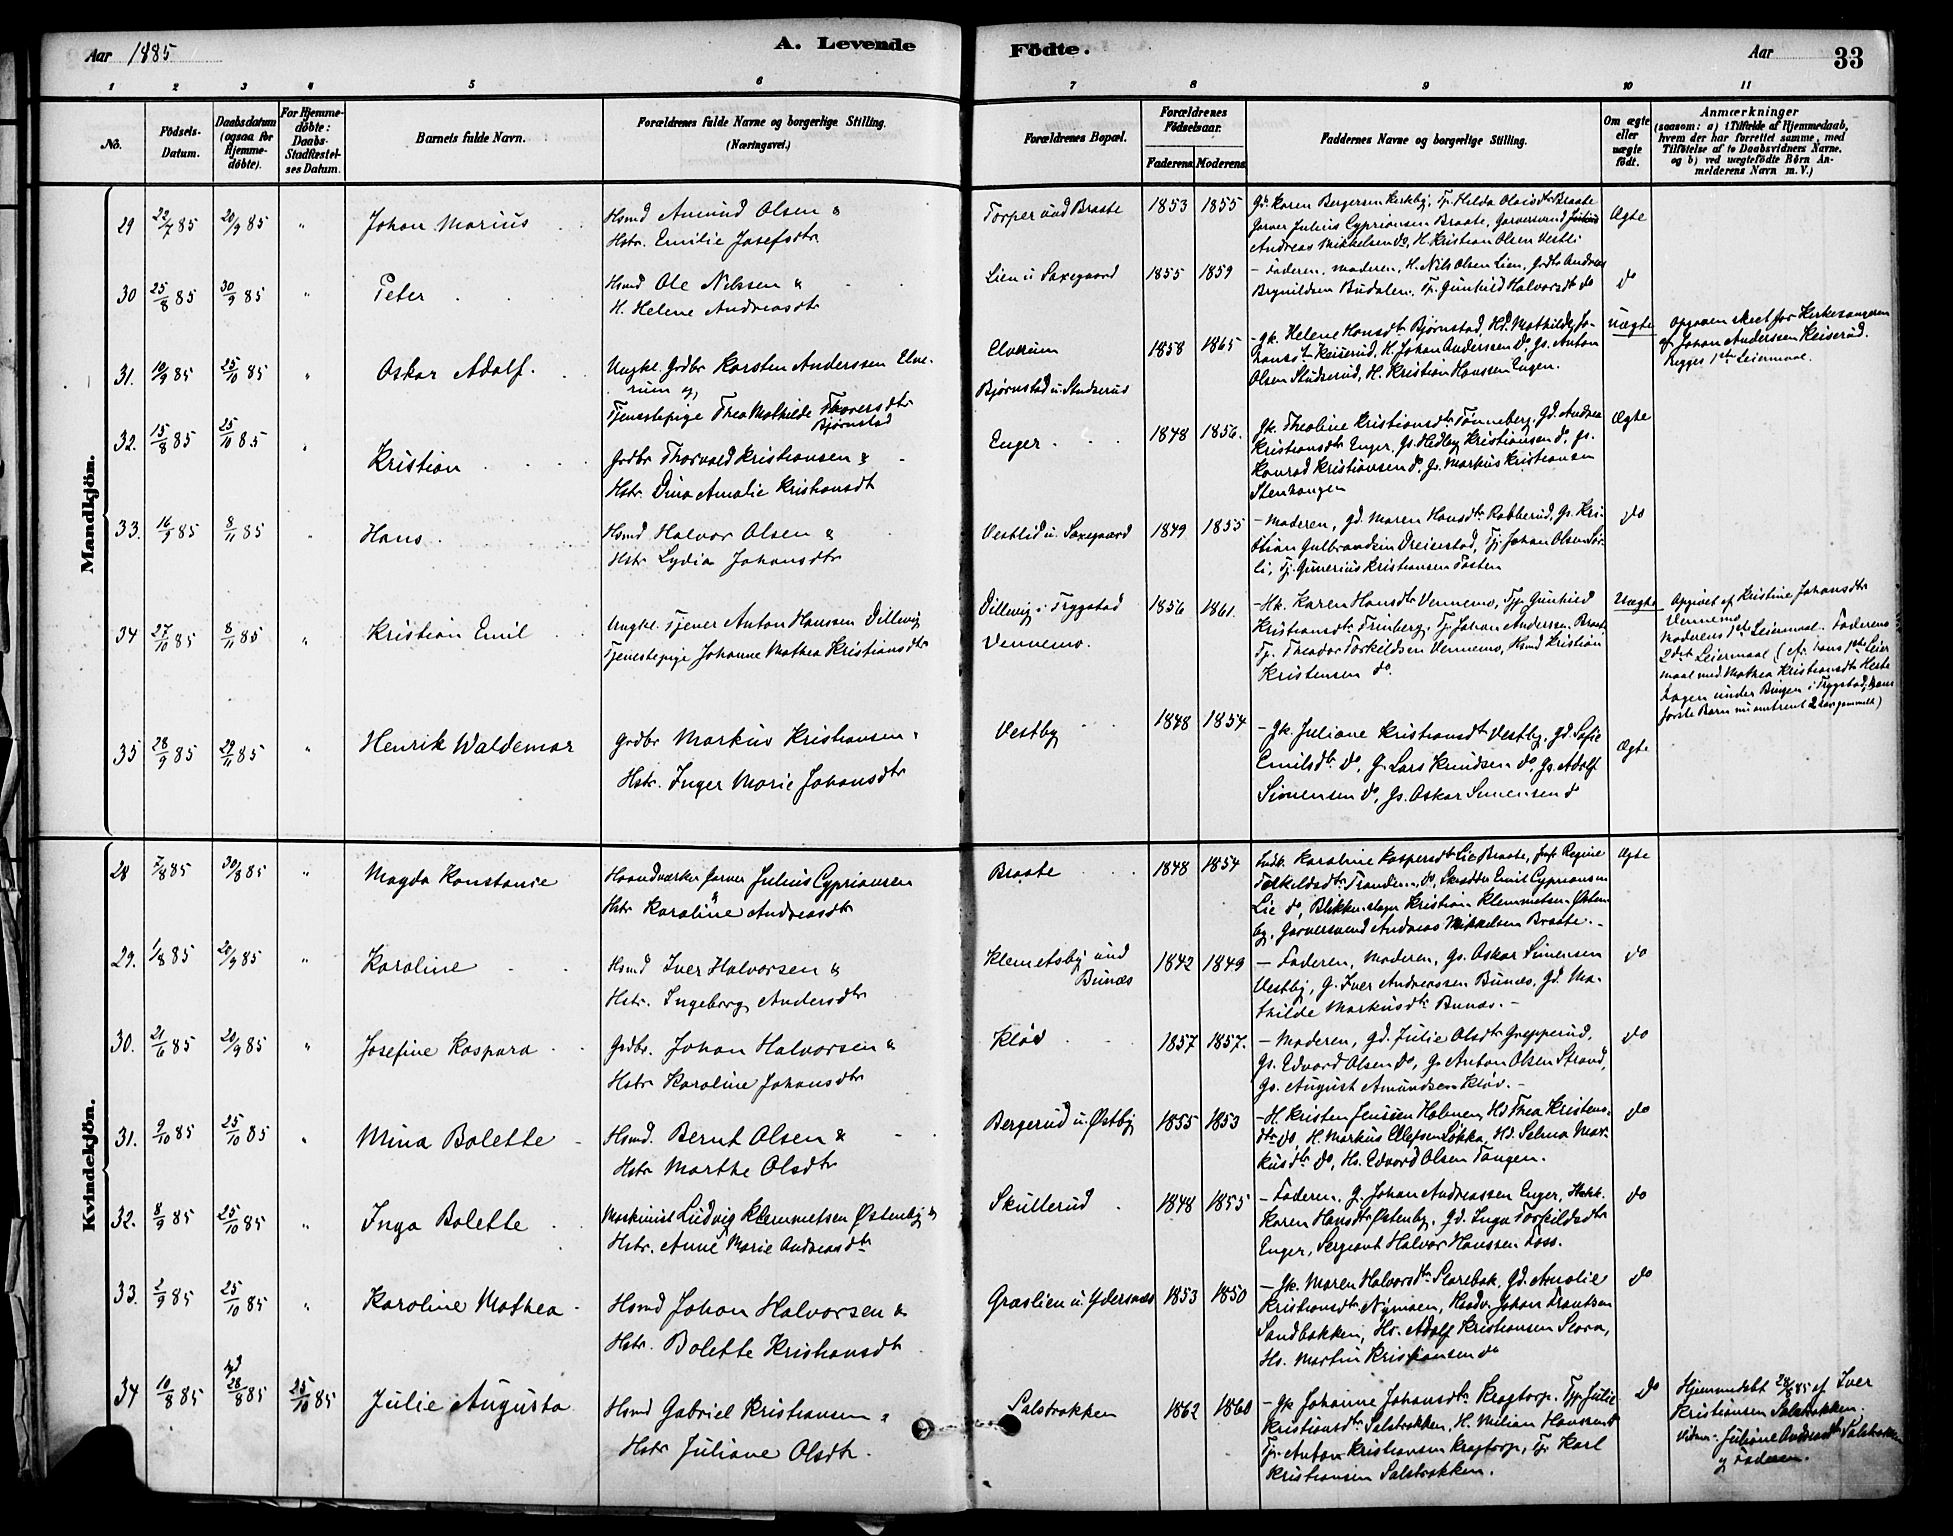 Aar 1885
A. Levende
Födte.
Aar
33
1 2 3 4 5 6 7 8 9 10 11
No.
Födsels-Datum.
Daabsdatum (ogsaa for Hjemmedöbte).
For Hjemmedöbte: Daabs-Stadfæstelses Datum.
Barnets fulde Navn.
Forældrenes fulde Navne og borgerlige Stilling. (Næringsvei.)
Forældrenes Bopæl.
Forældrenes Födselsaar.
Faderens. Moderens.
Faddernes Navne og borgerlige Stilling.
Om ægte eller uægte födt.
Anmærkninger
(saasom: a) i Tilfælde af Hjemmedaab,
hvem der har forrettet samme, med
Tilföielse af to Daabsvidners Navne,
og b) ved uægtefödte Börn Anmelderens Navn m. V.)
Mandkjön.
29 22/7 85 20/9 85 " Johan Marius
Hsmd Amund Olsen &
Hstr. Emilie Josefsdtr
Torper und Braate 1853 1855
Gk Karen Bergersen Kirkeby, Tp. Hilda Olaisdtr Braate
Garver Julius Cypriansen Braate, Garversvend
Andreas Mikkelsen do, H. Kristian Olsen Vestli
Ægte
30 25/8 85 30/9 85 " Peter
Hsmd Ole Nilssen &
H. Helene Andreasdtr
Lien u Saxegaard 1855 1859
- Faderen, Moderen, H. Nils Olsen Lien, Grdbr Andreas
Brynildsen Budalen, Tp. Gunhild Halvorsdtr do
do
31. 10/9 85 25/10 85 " Oskar Adolf.
Ungkl. Grdbr Karsten Anderssen Elverum og
Tjenestepige Thea Mathilde Thoresdtr
Bjørnstad
Elverum
Bjørnstad u. Studserud
1858 1865
- Gk. Helene Hansdtr Bjørnstad, Hd. Mathilde Johansdtr Keiserud, H. Johan Anderssen do, Gs. Anton
Olsen Studserud, H. Kristian Hanssen Engen.
Uægte
Opgaven skeet for Kirkesangeren
af Johan Anderssen Keiserud.
Begges 1ste Leiermaal.
32. 15/8 85 25/10 85 " Kristian
Grdbr Thorvald Kristiansen &
Hstr. Dina Amalie Kristiansdt
Enger 1848 1856.
Gk. Theoline Kristiansdtr Tønneberg, Gd. Andrea
Kristiansdtr Enger, Gs. Hedley Kristiansen do, Gs.
Konrad Kristiansen do, Gs. Markus Kristiansen
Stenhaugen
Ægte
33. 16/9 85 8/11 85 " Hans
Hsmd Halvor Olsen &
Hstr Lydia Johansdtr
Vestlid u. Saxegaard 1849 1855
- Moderen, Gd. Maren Hansdtr Rabberud, Gs. Kristian Gulbrandsen Dreierstad, Tj. Johan Olsen Sørli, Tj. Gunerius Kristiansen Fosten
do
34 27/10 85 8/11 85 " Kristian Emil
Ungkl. Tjener Anton Hanssen Dillevig
Tjenestepige Johanne Mathea Kristiansdtr
Dillevig i Trygstad
Vennemo.
1856 1861.
- Hk. Karen Hansdtr Vennemo, Tp. Gunhild
Kristiansdtr Frinberg, Tj. Johan Andersen Braate
Tj. Theodor Torkildsen Vennemo, Hsmd Kristian
Kristensen do
Uægte
Opgivet af Kristine Johansdtr
Vennemo
Moderens 1ste Leiermaal. Faderens
2det Leiermaal (cfr. hans 1ste Leiermaal med Mathea Kristiansdtr Hestehagen under Bingen i Trygstad, hans
første Barn nu omtrent 2 Aar gammelt)
35 28/9 85 29/11 85 " Henrik Waldemar
Grdbr Markus Kristiansen &
Hstr. Inger Marie Johansdtr
Vestby 1848 1854
- Gk. Juliane Kristiansdtr Vestby, Gd. Sofie
Emilsdtr do, G. Lars Knudsen do, Gs. Adolf
Simensen do, Gs. Oskar Simensen do
Ægte
Kvindekjön.
28 7/8 85 30/8 85 " Magda Konstanse
Haandværker Garver Julius Cypriansen
&
Hstr Karoline Andreasdtr
Braate 1848 1854
Indk. Karoline Kaspersdtr Lie Braate, Jomf. Regine
Torkildsdtr Tranderen, do, Skrædder Emil Cypriansen
Lie do, Blikkenslager Kristian Klemmetsen Østenby, Garversvend Andreas Mikkelsen Braate. -
Ægte
29. 1/8 85 20/9 85 " Karoline
Hsmd Iver Halvorsen &
Hstr. Ingeborg Andersdtr
Klemetsby und
Bunæs
1842 1849
- Faderen, Moderen, Gs. Oskar Simensen
Vestby, G. Iver Andreassen Bunæs, Gd. Mathilde Markusdtr Bunæs. -
do
30. 21/6 85 20/9 85 " Josefine Kaspara
Grdbr. Johan Halvorsen &
Hstr Karoline Johansdtr
Kløv 1857 1857.
- Moderen, Gd. Julie Olsdtr Grepperud,
Gs. Edvard Olsen do, Gs Anton Olsen Strand,
Gs. August Amundsen Kløv. -
do
31. 9/10 85 25/10 85 " Mina Bolette
Hsmd. Bernt Olsen &
Hstr Marthe Olsdtr
Bergerud u. Østby 1855 1853
- H. Kristen Jenssen Holmen, Hd Thea Kristensdtr do, H. Markus Ellefsen Løkka, Hd. Selma Markusdtr do, Hs. Edvard Olsen Tangen.
do
32. 8/9 85 25/10 85 " Inga Bolette
Maskinist Ludvig Klemmetsen Østenby &
Hstr. Anne Marie Andreasdtr
Skullerud 1848 1855
- Faderen, G. Johan Andreassen Enger,
Karen Hansdtr Østenby, Gd. Inga Torkildsdtr
Enger, Sergeant Halvor Hanssen Foss.
do
33. 2/9 85 25/10 85 " Karoline Mathea
Hsmd Johan Halvorsen &
Hstr. Bolette Kristiansdt
Graslien u. Ydersnæs 1853 1850
- Gk. Maren Halvorsdtr Slorebak, Gd. Amalie
Kristiansdtr Nymoen, Haadv. Johan Frantsen
Sandbakken, Hs. Adolf Kristiansen Slora,
Hs. Martin Kristiansen do
do
34 10/8 85 hjd 28/8 85 25/10 85 Julie Augusta
Hsmd Gabriel Kristiansen &
Hstr Juliane Olsdtr.
Salsbakken 1862 1860
- Gk Johanne Johansdtr Kragtorp, Tp. Julie
Kristiansdtr Salsbakken, H. Milian Hanssen do
Tj. Anton Kristiansen Kragtorp, Tj. Karl
Kristiansen Salsbakken.
do
Hjemmedøbt 28/8 85 af Iver
Kristiansen Salsbakken.
Vidner: Juliane Andreasdtr Salsbakken
og Faderen.